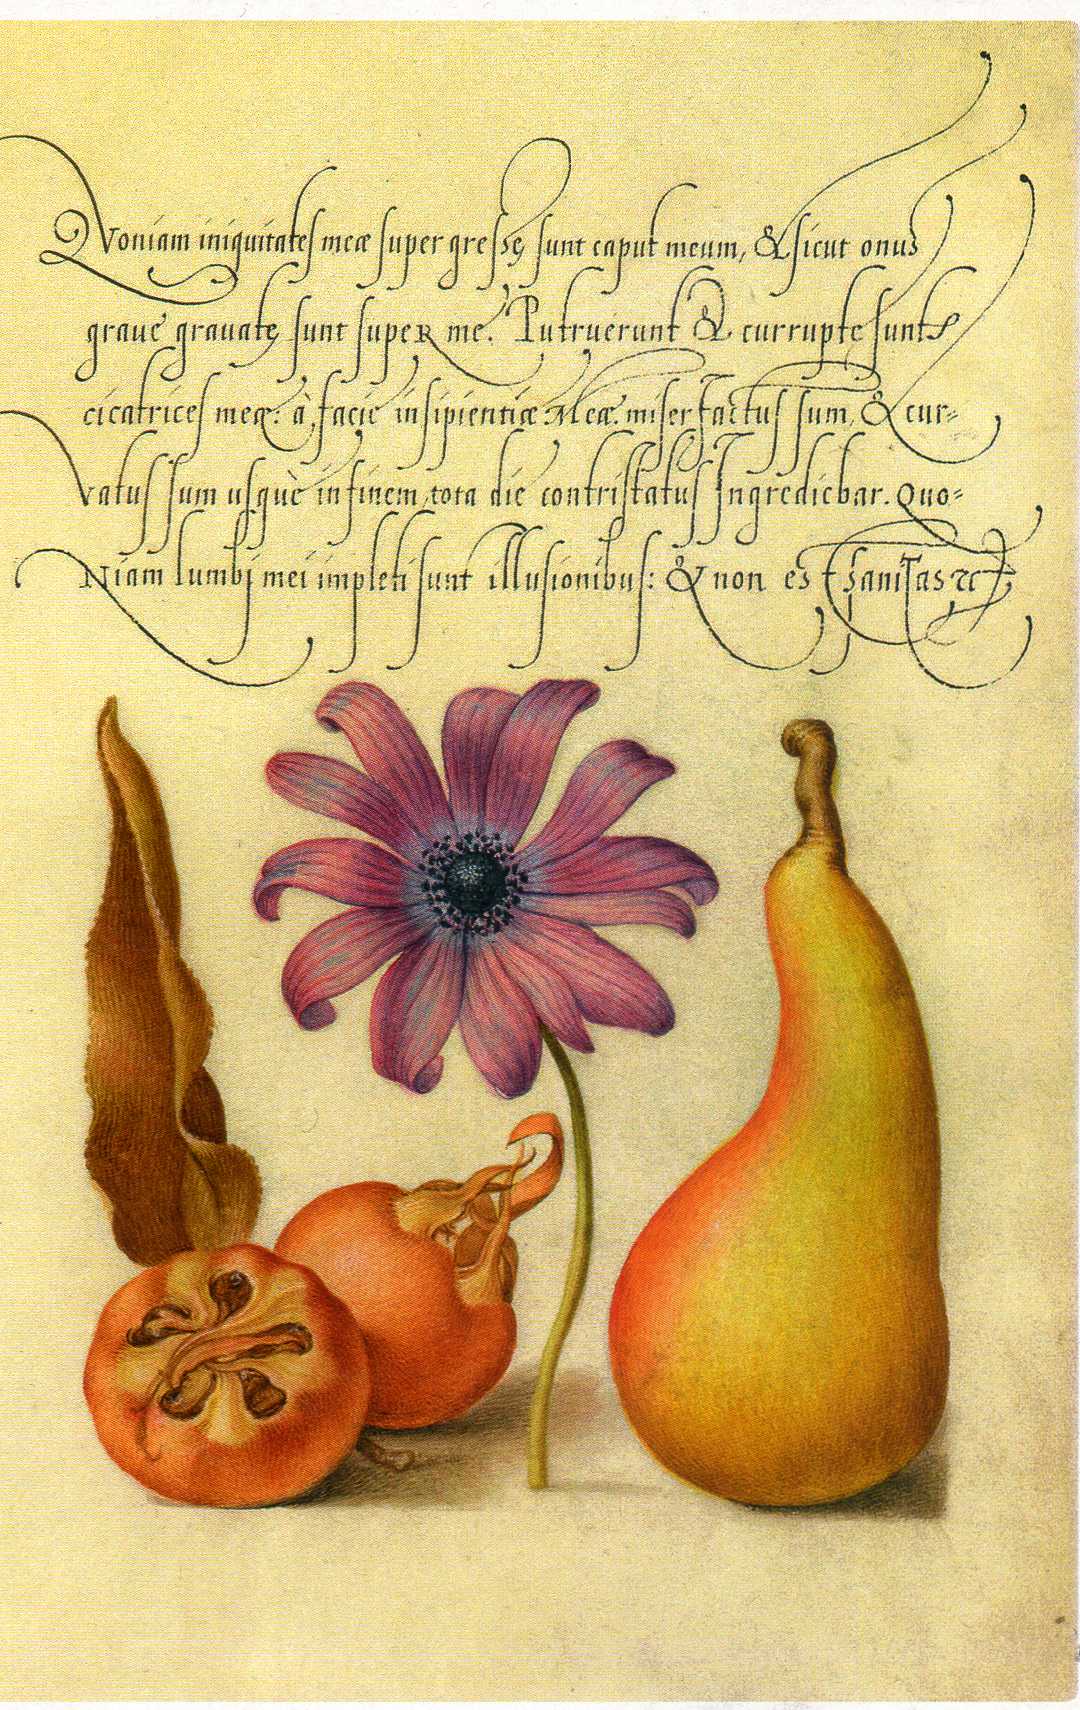 Quoniam iniquitates meæ supergressę sunt caput meum, & sicut onus
graue grauatę sunt super me. Putruerunt & currupte sunt
cicatrices meę: à facie insipientiæ Meæ. miser factus sum, & cur=
vatus sum usquè in finem, tota die contristatus Ingrediebar. Quo=
Niam lumbi mei impleti sunt illusionibus: & non est sanitas